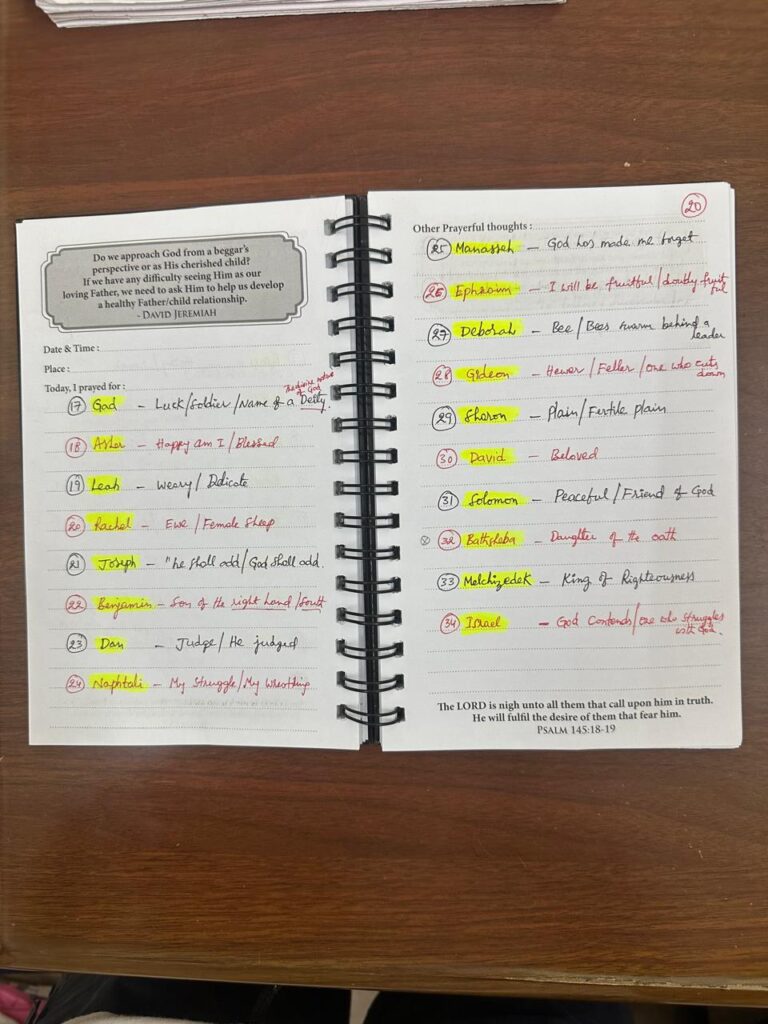 Do we approach God from a beggar's
perspective or as His cherished child?
If we have any difficulty seeing Him as our
loving Father, we need to ask Him to help us develop
a healthy Father/child relationship.
- DAVID JEREMIAH
Date & Time :
Place :
Today, I prayed for :
The divine nature
of God
17 Gad - Luck/Soldier/Name of a Deity.
18 Asher - Happy am I/Blessed
19 Leah - Weary/Delicate
20 Rachel - Ewe/Female Sheep
21 Joseph - "he shall add/God shall add.
22 Benjamin - Son of the right hand/South
23 Dan - Judge/He judged
24 Naphtali - My Struggle/My Wrestling
20
Other Prayerful thoughts :
25 Manasseh - God has made me forget
26 Ephraim - I will be fruitful/doubly fruit
ful
27 Deborah - Bee/Bees swarm behind a
leader
28 Gideon - Hewer/Feller/one who cuts
down
29 Sharon - Plain/Fertile plain
30 David - Beloved
31 Solomon - Peaceful/Friend of God
32 Bathsheba - Daughter of the oath
33 Melchizedek - King of Righteousness
34 Israel - God Contends/one who struggles
with God.
The LORD is nigh unto all them that call upon him in truth.
He will fulfil the desire of them that fear him.
PSALM 145:18-19